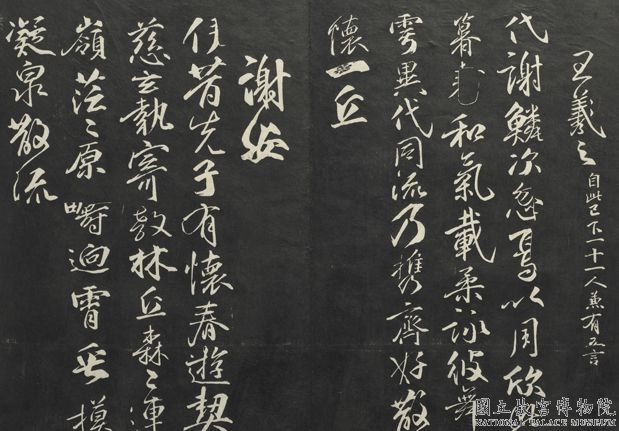 王羲之 自此已下一十一人兼有五言
代謝鱗次忽焉以周欣此
暮春和氣載柔詠彼舞
雩異代同流乃携齊好散
懷一丘
謝安
伊昔先子有懷春遊契
茲言執寄敖林丘森々連
嶺茫々原疇迥霄垂
凝泉散流
國立故宮博物院
NATIONAL PALACE MUSEUM